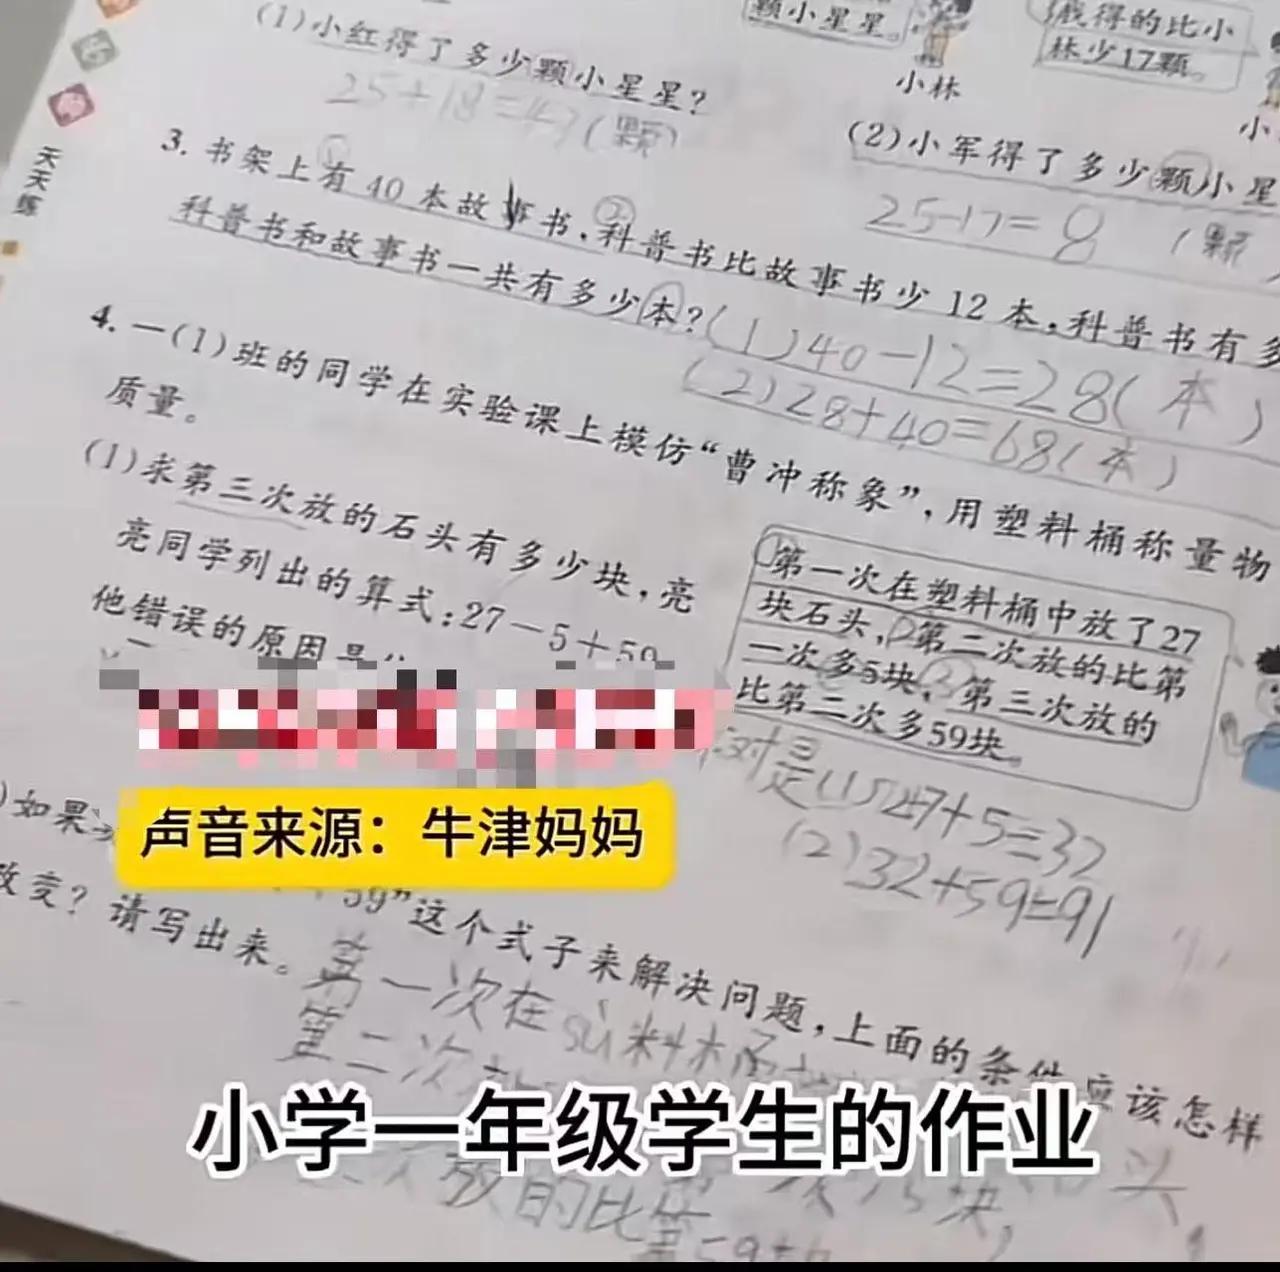 颗小星星。
我得的比小
林少17颗。
小林
(1)小红得了多少颗小星星?
25+18=43(颗)
(2)小军得了多少颗小星
25-17=8(颗
天天练
3. 书架上有40本故事书,科普书比故事书少12本,科普书有多
科普书和故事书一共有多少本?
(1)40-12=28(本)
(2)28+40=68(本)
4. 一(1)班的同学在实验课上模仿“曹冲称象”,用塑料桶称量物
质量。
(1)求第三次放的石头有多少块,亮
亮同学列出的算式:27-5+59
他错误的原因是
第一次在塑料桶中放了27
块石头,第二次放的比第
一次多5块,第三次放的
比第二次多59块。
对是(1)27+5=32
(2)32+59=91
声音来源：牛津妈妈
)如果
59”这个式子来解决问题,上面的条件应该怎样
改变?请写出来。
第一次在sù料桶
第二次
小学一年级学生的作业
放的比第
块,
头,